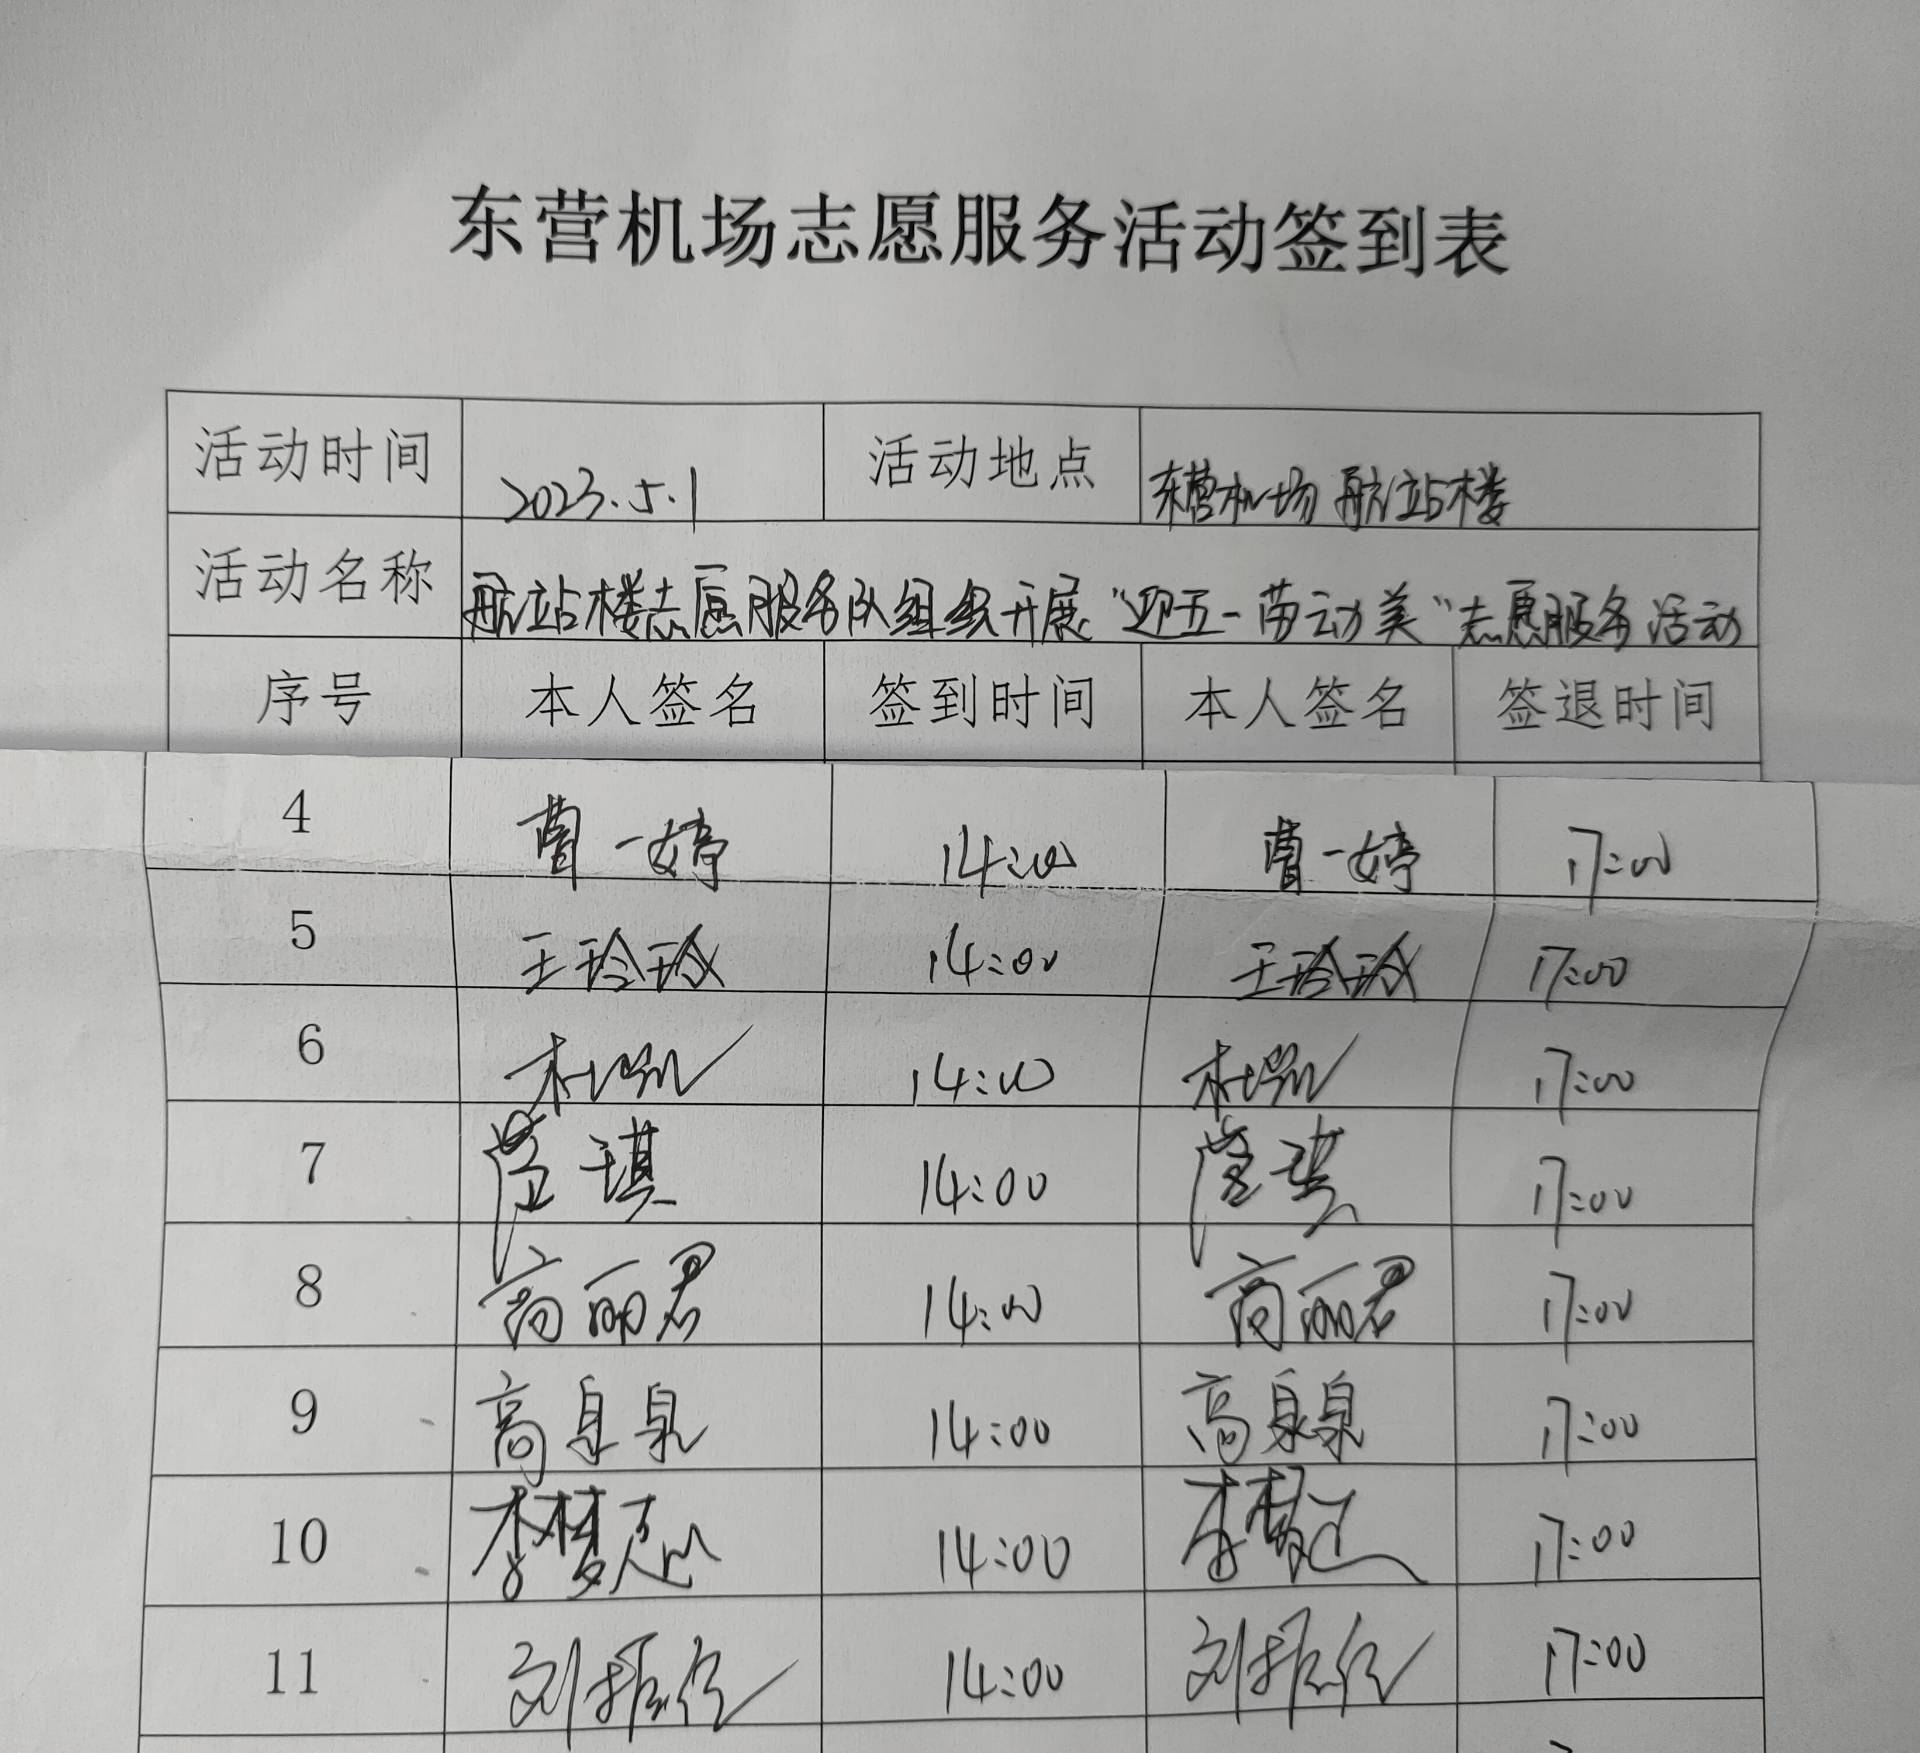 东营机场志愿服务活动签到表
活动时间 2023.5.1 活动地点 东营机场航站楼
活动名称 航站楼志愿服务队组织开展“迎五一劳动美”志愿服务活动
序号 本人签名 签到时间 本人签名 签退时间
4 曹一婷 14:00 曹一婷 17:00
5 王玲玲 14:00 王玲玲 17:00
6 14:00 17:00
7 琪 14:00 琪 17:00
8 高丽君 14:00 高丽君 17:00
9 高泉泉 14:00 高泉泉 17:00
10 李梦 14:00 李梦 17:00
11 刘振 14:00 刘振 17:00